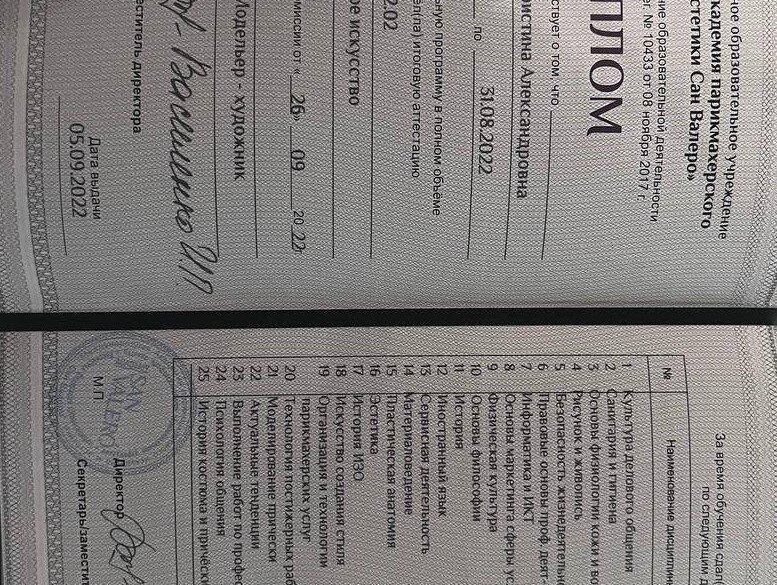 ное образовательное учреждение
кадемия парикмахерского
стетики Сан Валеро»
ние образовательной деятельности
ег. № 10433 от 08 ноября 2017 г.
ПЛОМ
ствует о том, что
ристина Александровна
по 31.08.2022
ную программу в полном объёме
ел(ла) итоговую аттестацию
2.02
ое искусство
миссии от «26» 09 2022
Модельер - художник
Василенко И.П.
еститель директора
Дата выдачи
05.09.2022
За время обучения сдал
по следующим
№ Наименование дисциплин
1 Культура делового общения
2 Санитария и гигиена
3 Основы физиологии кожи и в
4 Рисунок и живопись
5 Безопасность жизнедеятельн
6 Правовые основы проф. деят
7 Информатика и ИКТ
8 Основы маркетинга сферы ус
9 Физическая культура
10 Основы философии
11 История
12 Иностранный язык
13 Сервисная деятельность
14 Материаловедение
15 Пластическая анатомия
16 Эстетика
17 История ИЗО
18 Искусство создания стиля
19 Организация и технологии
парикмахерских услуг
20 Технология постижерных раб
21 Моделирование прически
22 Актуальные тенденции
23 Выполнение работ по профес
24 Психология общения
25 История костюма и прически
SAN VALERO
М.П.
Директор
Секретарь/заместит